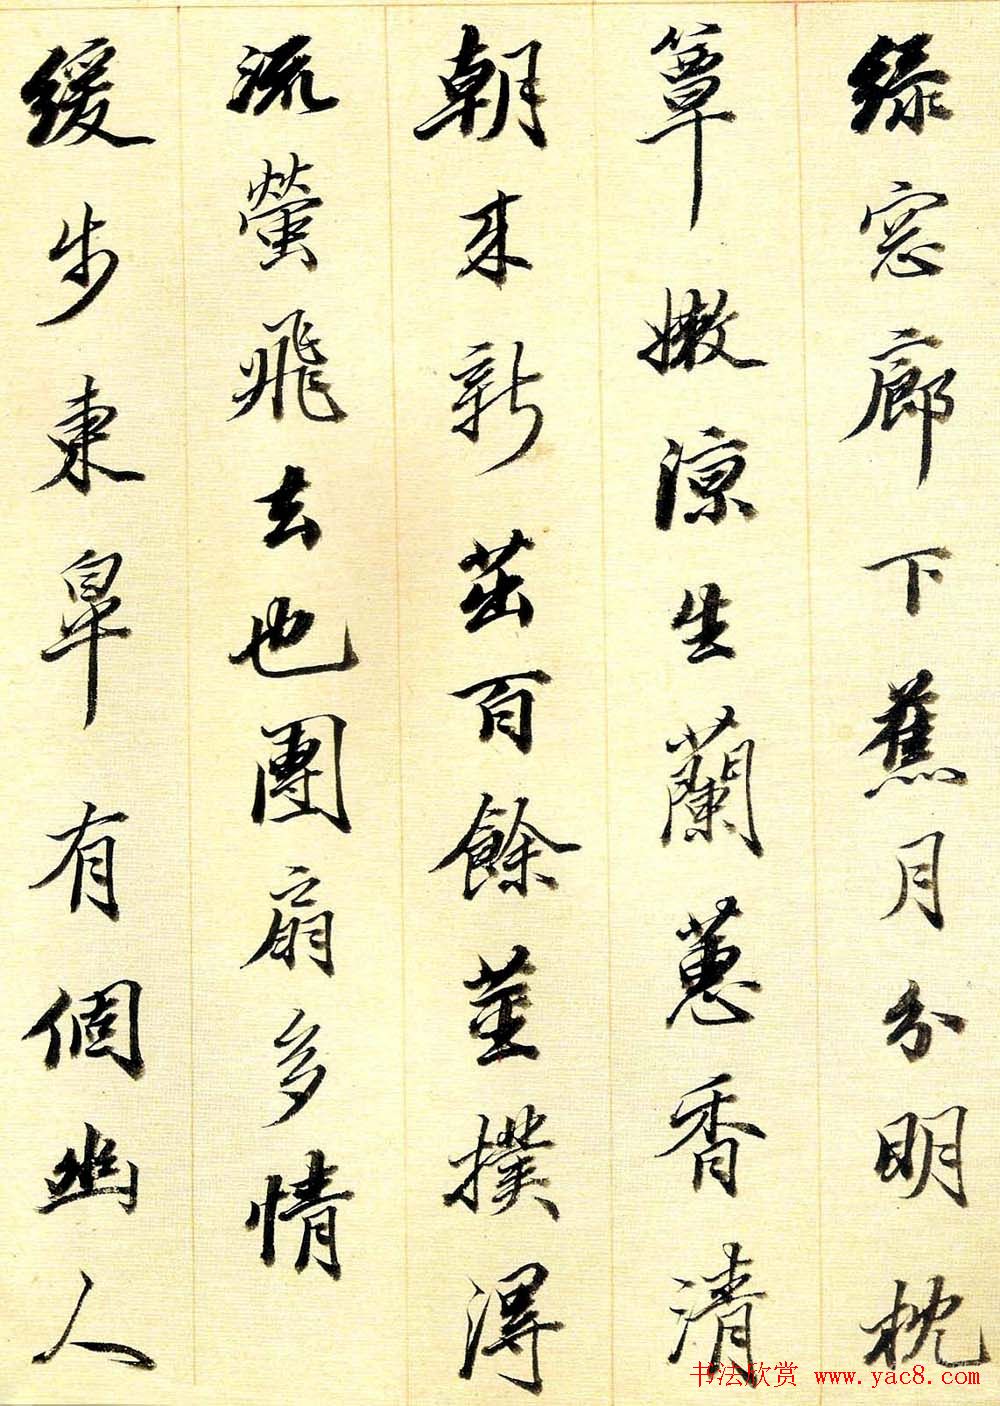 綠窓廊下蕉月分明枕
簟嫩涼生蘭蕙香清
朝来新茁百餘莖撲得
流螢飛去也團扇多情
緩步東皋有個幽人
书法欣赏 www.yac8.com